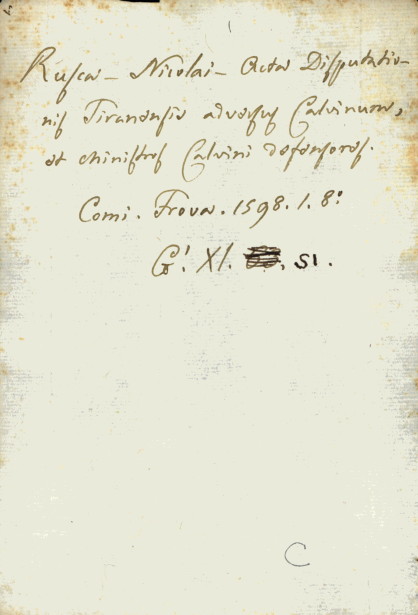 Rusca - Nicolai - Acta Disputatio-
nis Tiranensis adversus Calvinum,
et Ministros Calvini defensores.
Comi. Frova. 1598. 1. 8.º
G. XI. 51.
C